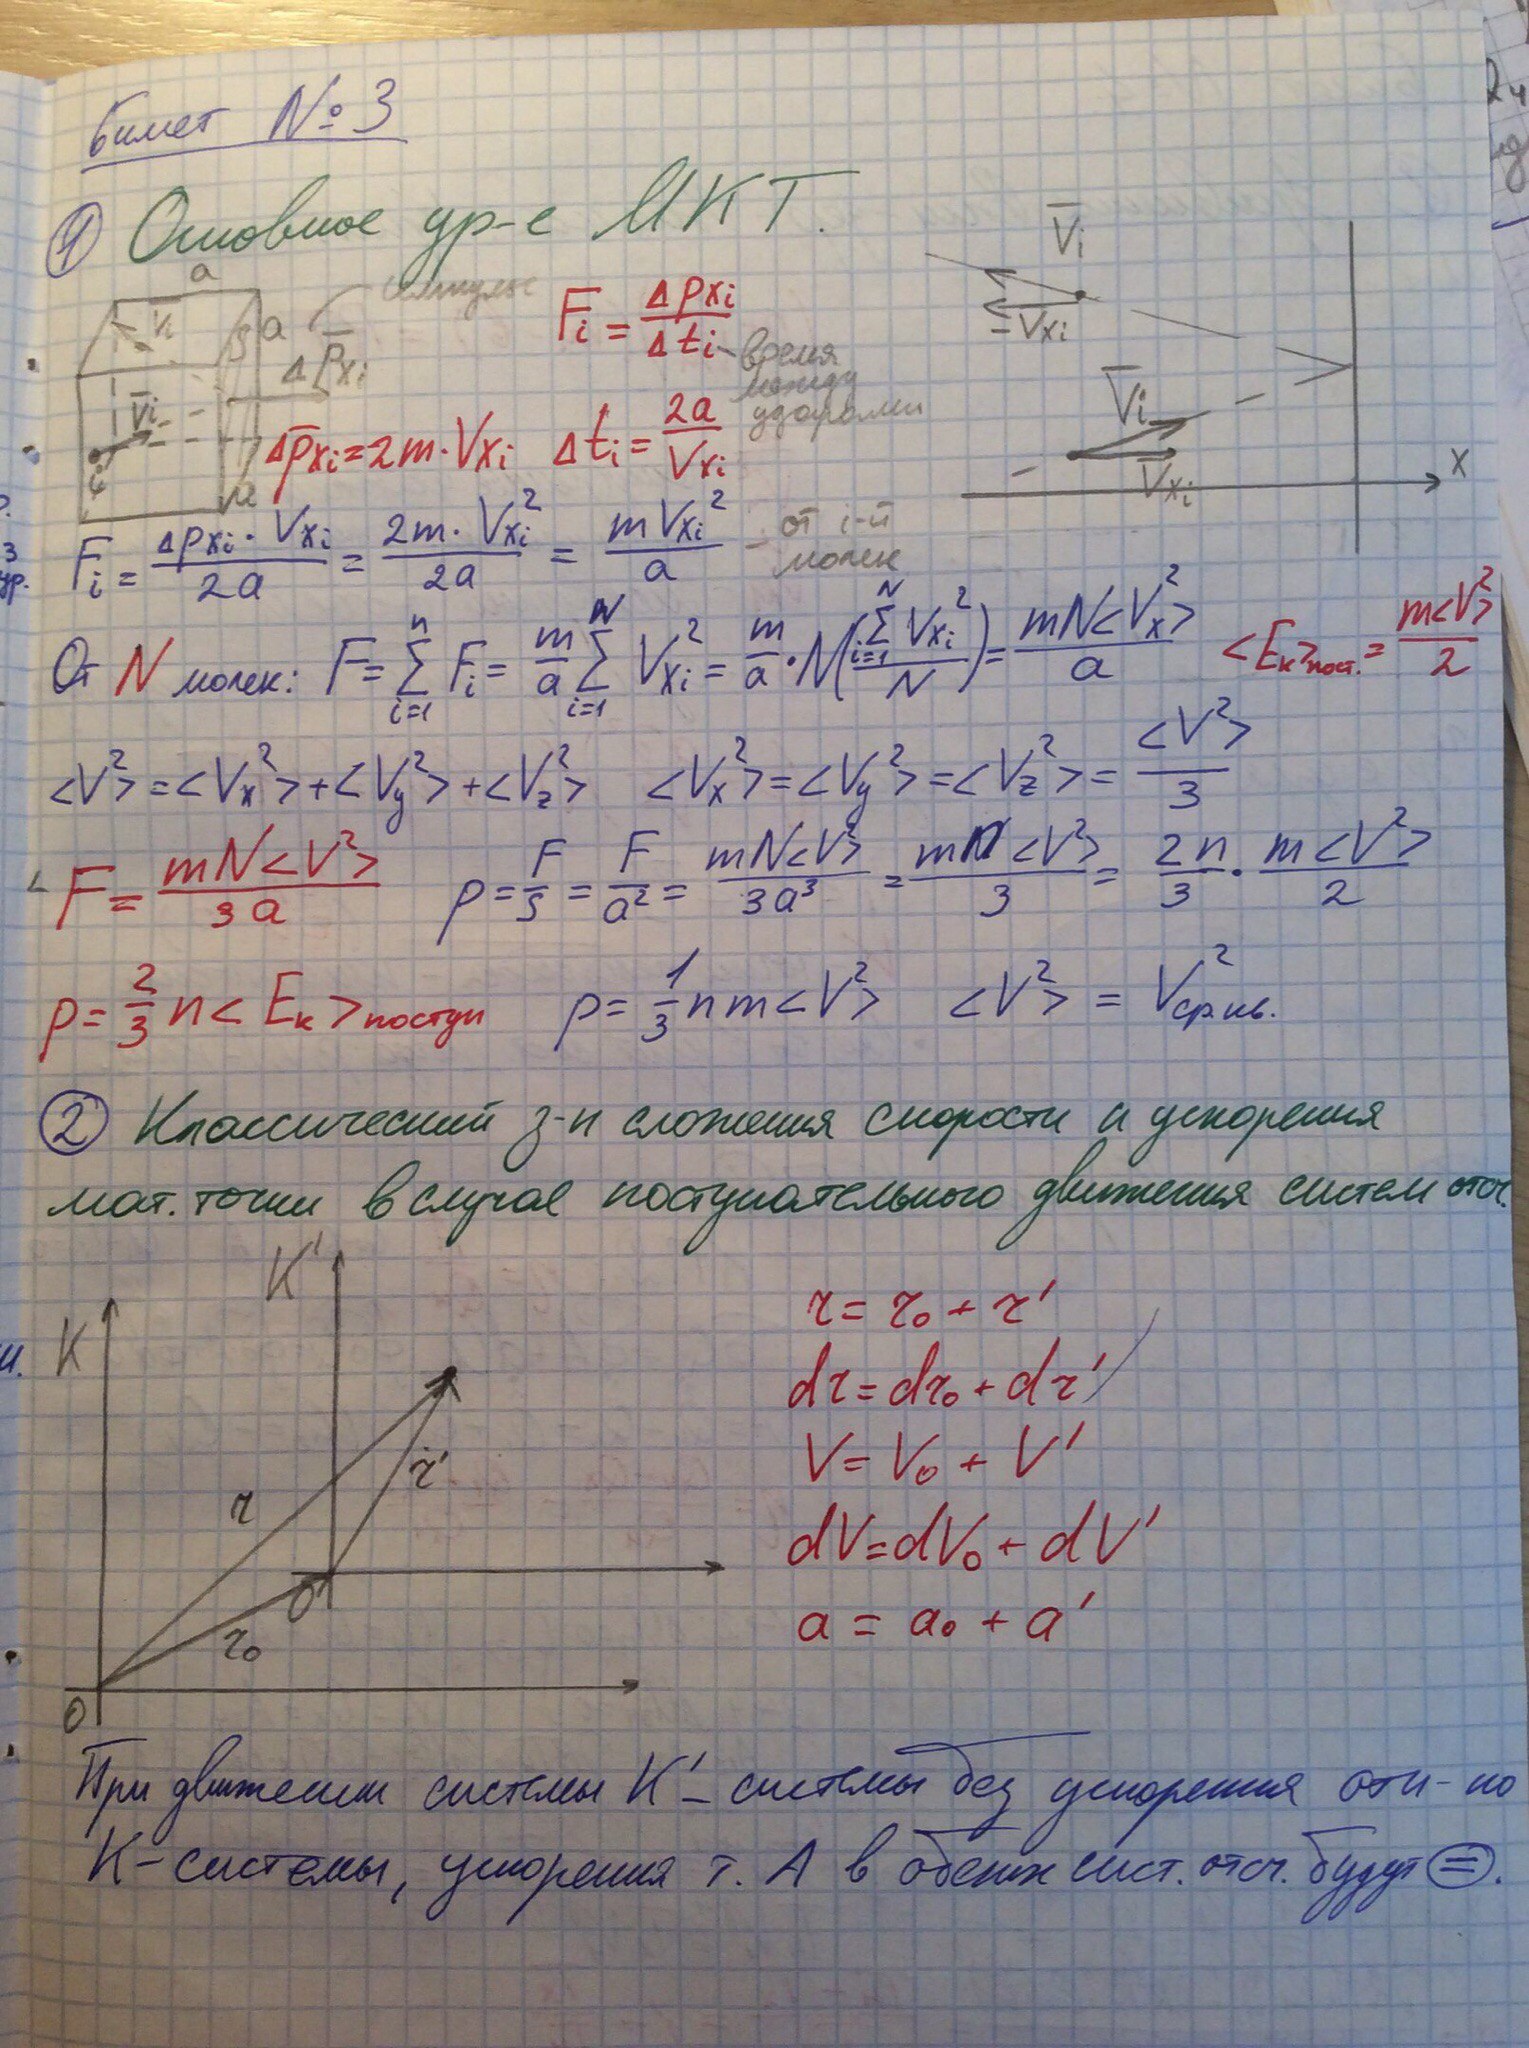 Билет №3
① Основное ур-е МКТ.
a
a
импульс
V̅i
V̅i
i
Δp̅xi
Fi = Δpxi / Δti - время
между
ударами
Δp̅xi = 2m·Vxi   Δti = 2a / Vxi
V̅i
-V̅xi
V̅i
V̅xi
x
Fi = Δpxi·Vxi / 2a = 2m·Vxi² / 2a = mVxi² / a - от i-й
молек
От N молек: F = Σ(i=1, n) Fi = m/a Σ(i=1, N) Vxi² = m/a · N(Σ(i=1, N) Vxi² / N) = mN<Vx²> / a   <Eк>пост. = m<V²> / 2
<V²> = <Vx²> + <Vy²> + <Vz²>   <Vx²> = <Vy²> = <Vz²> = <V²> / 3
F = mN<V²> / 3a   p = F/S = F/a² = mN<V²> / 3a³ = mn<V²> / 3 = 2n/3 · m<V²> / 2
p = 2/3 n<Eк>поступ   p = 1/3 nm<V²>   <V²> = V²ср.кв.
② Классический з-н сложения скорости и ускорения
мат. точки в случае поступательного движения систем отсч.
K
K'
r
r'
r₀
O'
O
r = r₀ + r'
dr = dr₀ + dr'
V = V₀ + V'
dV = dV₀ + dV'
a = a₀ + a'
При движении системы K' - системы без ускорения отн-но
K-системы, ускорения т. A в обеих сист. отсч. будут ⊜.